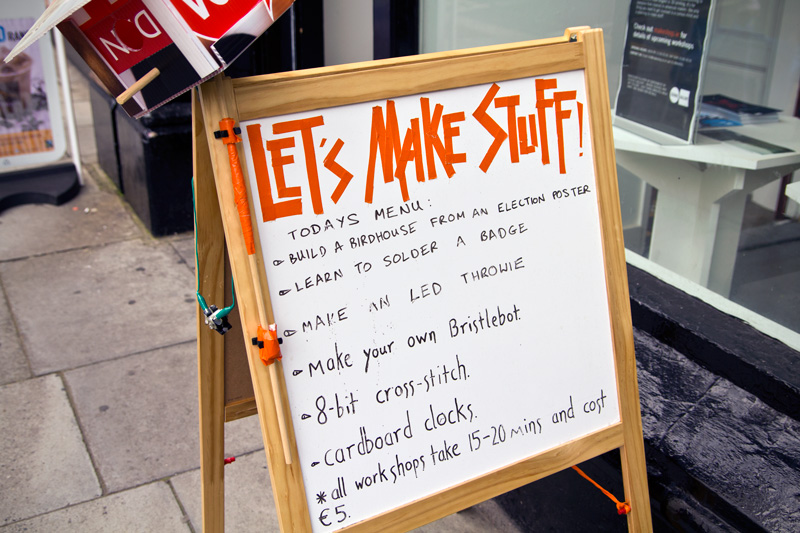 LET'S MAKE STUFF!
TODAYS MENU:
BUILD A BIRDHOUSE FROM AN ELECTION POSTER
LEARN TO SOLDER A BADGE
MAKE AN LED THROWIE
Make your own Bristlebot.
8-bit cross-stitch.
cardboard clocks.
*all workshops take 15-20 mins and cost
€5.
details of upcoming workshops